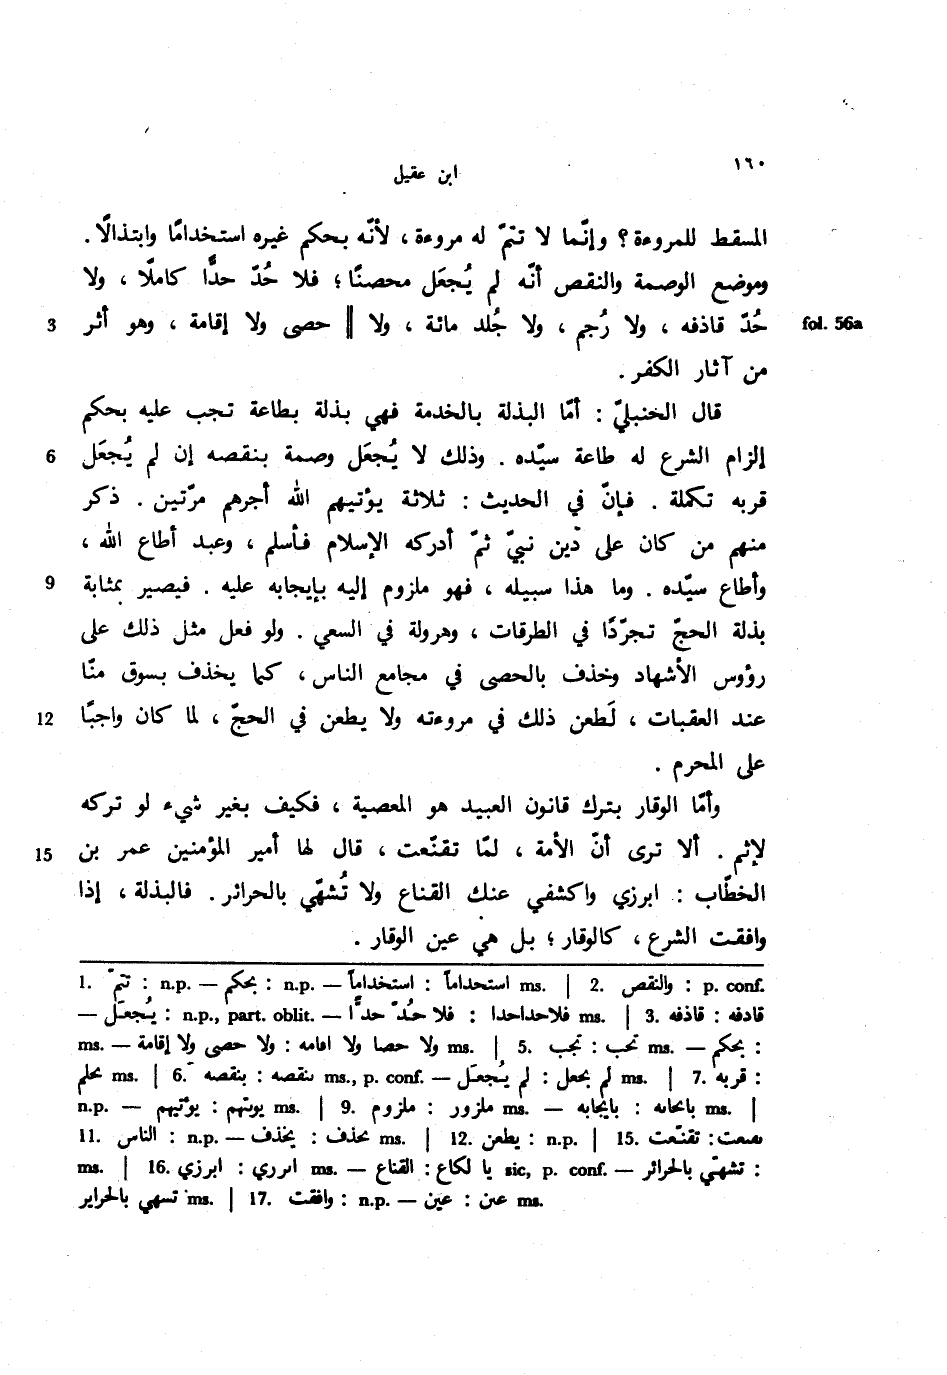 ١٦٠
ابن عقيل
المسقط للمروءة؟ وإنّما لا تتمّ له مروءة، لأنّه بحكم غيره استخدامًا وابتذالًا.
وموضع الوصمة والنقص أنّه لم يُجعَل محصنًا؛ فلا حُدّ حدًّا كاملًا، ولا
fol. 56a حُدّ قاذفه، ولا رُجم، ولا جُلد مائة، ولا ‖ حصى ولا إقامة، وهو أثر 3
من آثار الكفر.
قال الحنبليّ: أمّا البذلة بالخدمة فهي بذلة بطاعة تجب عليه بحكم
إلزام الشرع له طاعة سيّده. وذلك لا يُجعَل وصمة بنقصه إن لم يُجعَل 6
قربه تكملة. فإنّ في الحديث: ثلاثة يؤتيهم الله أجرهم مرّتين. ذكر
منهم من كان على دين نبيّ ثمّ أدركه الإسلام فأسلم، وعبد أطاع الله،
وأطاع سيّده. وما هذا سبيله، فهو ملزوم إليه بإيجابه عليه. فيصير بمثابة 9
بذلة الحجّ تجرّدًا في الطرقات، وهرولة في السعي. ولو فعل مثل ذلك على
رؤوس الأشهاد وخذف بالحصى في مجامع الناس، كما يخذف بسوق منّا
عند العقبات، لَطعن ذلك في مروءته ولا يطعن في الحجّ، لما كان واجبًا 12
على المحرم.
وأمّا الوقار بترك قانون العبيد هو المعصية، فكيف بغير شيء لو تركه
لإثم. ألا ترى أنّ الأمة، لمّا تقنّعت، قال لها أمير المؤمنين عمر بن 15
الخطّاب: ابرزي واكشفي عنك القناع ولا تُشهّي بالحرائر. فالبذلة، إذا
وافقت الشرع، كالوقار؛ بل هي عين الوقار.
1. تتمّ : n.p. — بحكم : n.p. — استخداماً : استحداماً ms. | 2. والنقص : p. conf.
— يُجعَل : n.p., part. oblit. — فلا حُدّ حدًّا : فلاحداحدا ms. | 3. قاذفه : قادفه
ms. — ولا حصى ولا إقامة : ولا حصا ولا اقامه ms. | 5. تجب : تحب ms. — بحكم :
بحلم ms. | 6. بنقصه : ىنقصه ms., p. conf. — لم يُجعَل : لم يحعل ms. | 7. قربه :
n.p. — يؤتيهم : يوتىهم ms. | 9. ملزوم : ملزور ms. — بإيجابه : باىحاىه ms. |
11. الناس : n.p. — يخذف : ىحذف ms. | 12. يطعن : n.p. | 15. تقنّعت : ىقىعت
ms. | 16. ابرزي : اىرري ms. — القناع : يا لكاع sic, p. conf. — تشهّي بالحرائر :
تسهي بالحراير ms. | 17. وافقت : n.p. — عين : عىن ms.